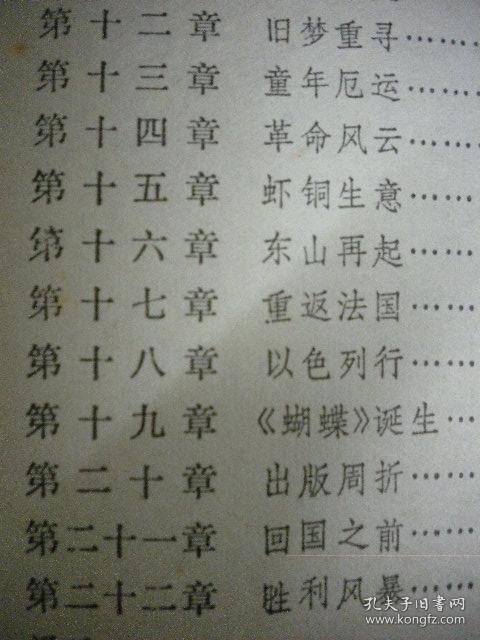 第十二章 旧梦重寻……
第十三章 童年厄运……
第十四章 革命风云……
第十五章 虾铜生意……
第十六章 东山再起……
第十七章 重返法国……
第十八章 以色列行……
第十九章 《蝴蝶》诞生…
第二十章 出版周折……
第二十一章 回国之前……
第二十二章 胜利风暴……
孔夫子旧书网
www.kongfz.com